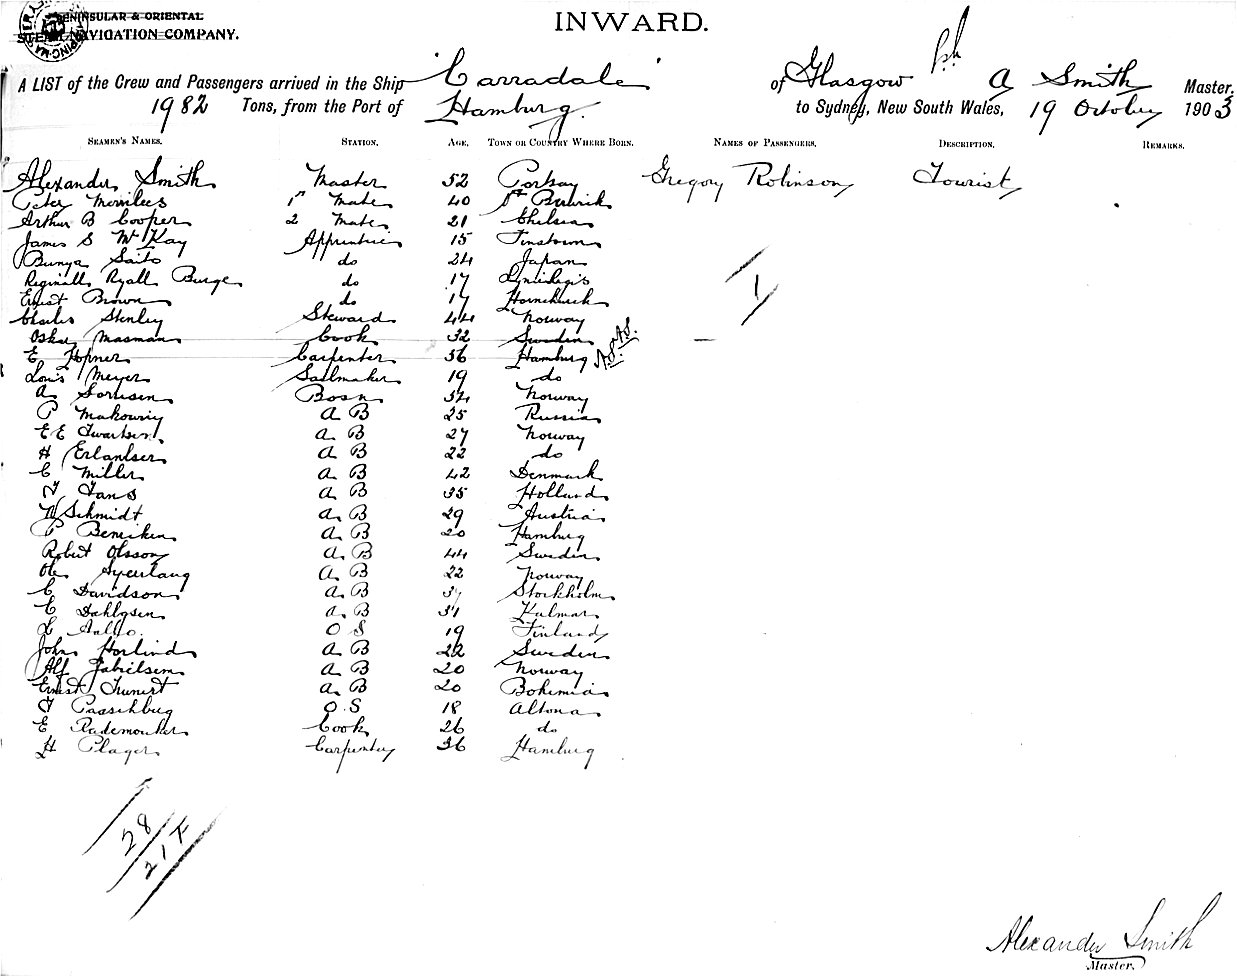 PENINSULAR & ORIENTAL
STEAM NAVIGATION COMPANY.
INWARD.
A LIST of the Crew and Passengers arrived in the Ship "Carradale" of Glasgow A Smith Master.
1982 Tons, from the Port of Hamburg to Sydney, New South Wales, 19 October 1903
SEAMEN'S NAMES. STATION. AGE. TOWN OR COUNTRY WHERE BORN. NAMES OF PASSENGERS. DESCRIPTION. REMARKS.
Alexander Smith Master 52 Gregory Robinson Tourist
Peter 1st Mate 40
Arthur B Cooper 2 Mate 21 Chelsea
James S McKay Apprentice 15
Bunya Saito do 24 Japan
Reginald Ryall Burge do 17
Ernest Brown do 17 Hornchurch
Charles Stenley Steward 44 Norway
Oskar Masman Cook 32 Sweden
E Hopner Carpenter 36 Hamburg
Louis Meyer Sailmaker 19 do
A Bosn 34 Norway
P A B 25 Russia
E E A. B 27 Norway
H Erlandsen A B 22 do
C Miller A B 42 Denmark
35 Holland
W Schmidt A. B 29 Austria
P A B 20 Hamburg
Robert Olsson A. B 44 Sweden
Ole A B 22 Norway
C Davidson A. B Stockholm
C Dahlgren A. B Kalmar
O S 19 Finland
John Horlind A B 22 Sweden
Alf A B 20 Norway
Ernest A. B 20 Bohemia
O S 18 Altona
E Rademacker Cook 26 do
H Plager Carpenter 36 Hamburg
1
28
21 F
Alexander Smith
Master.